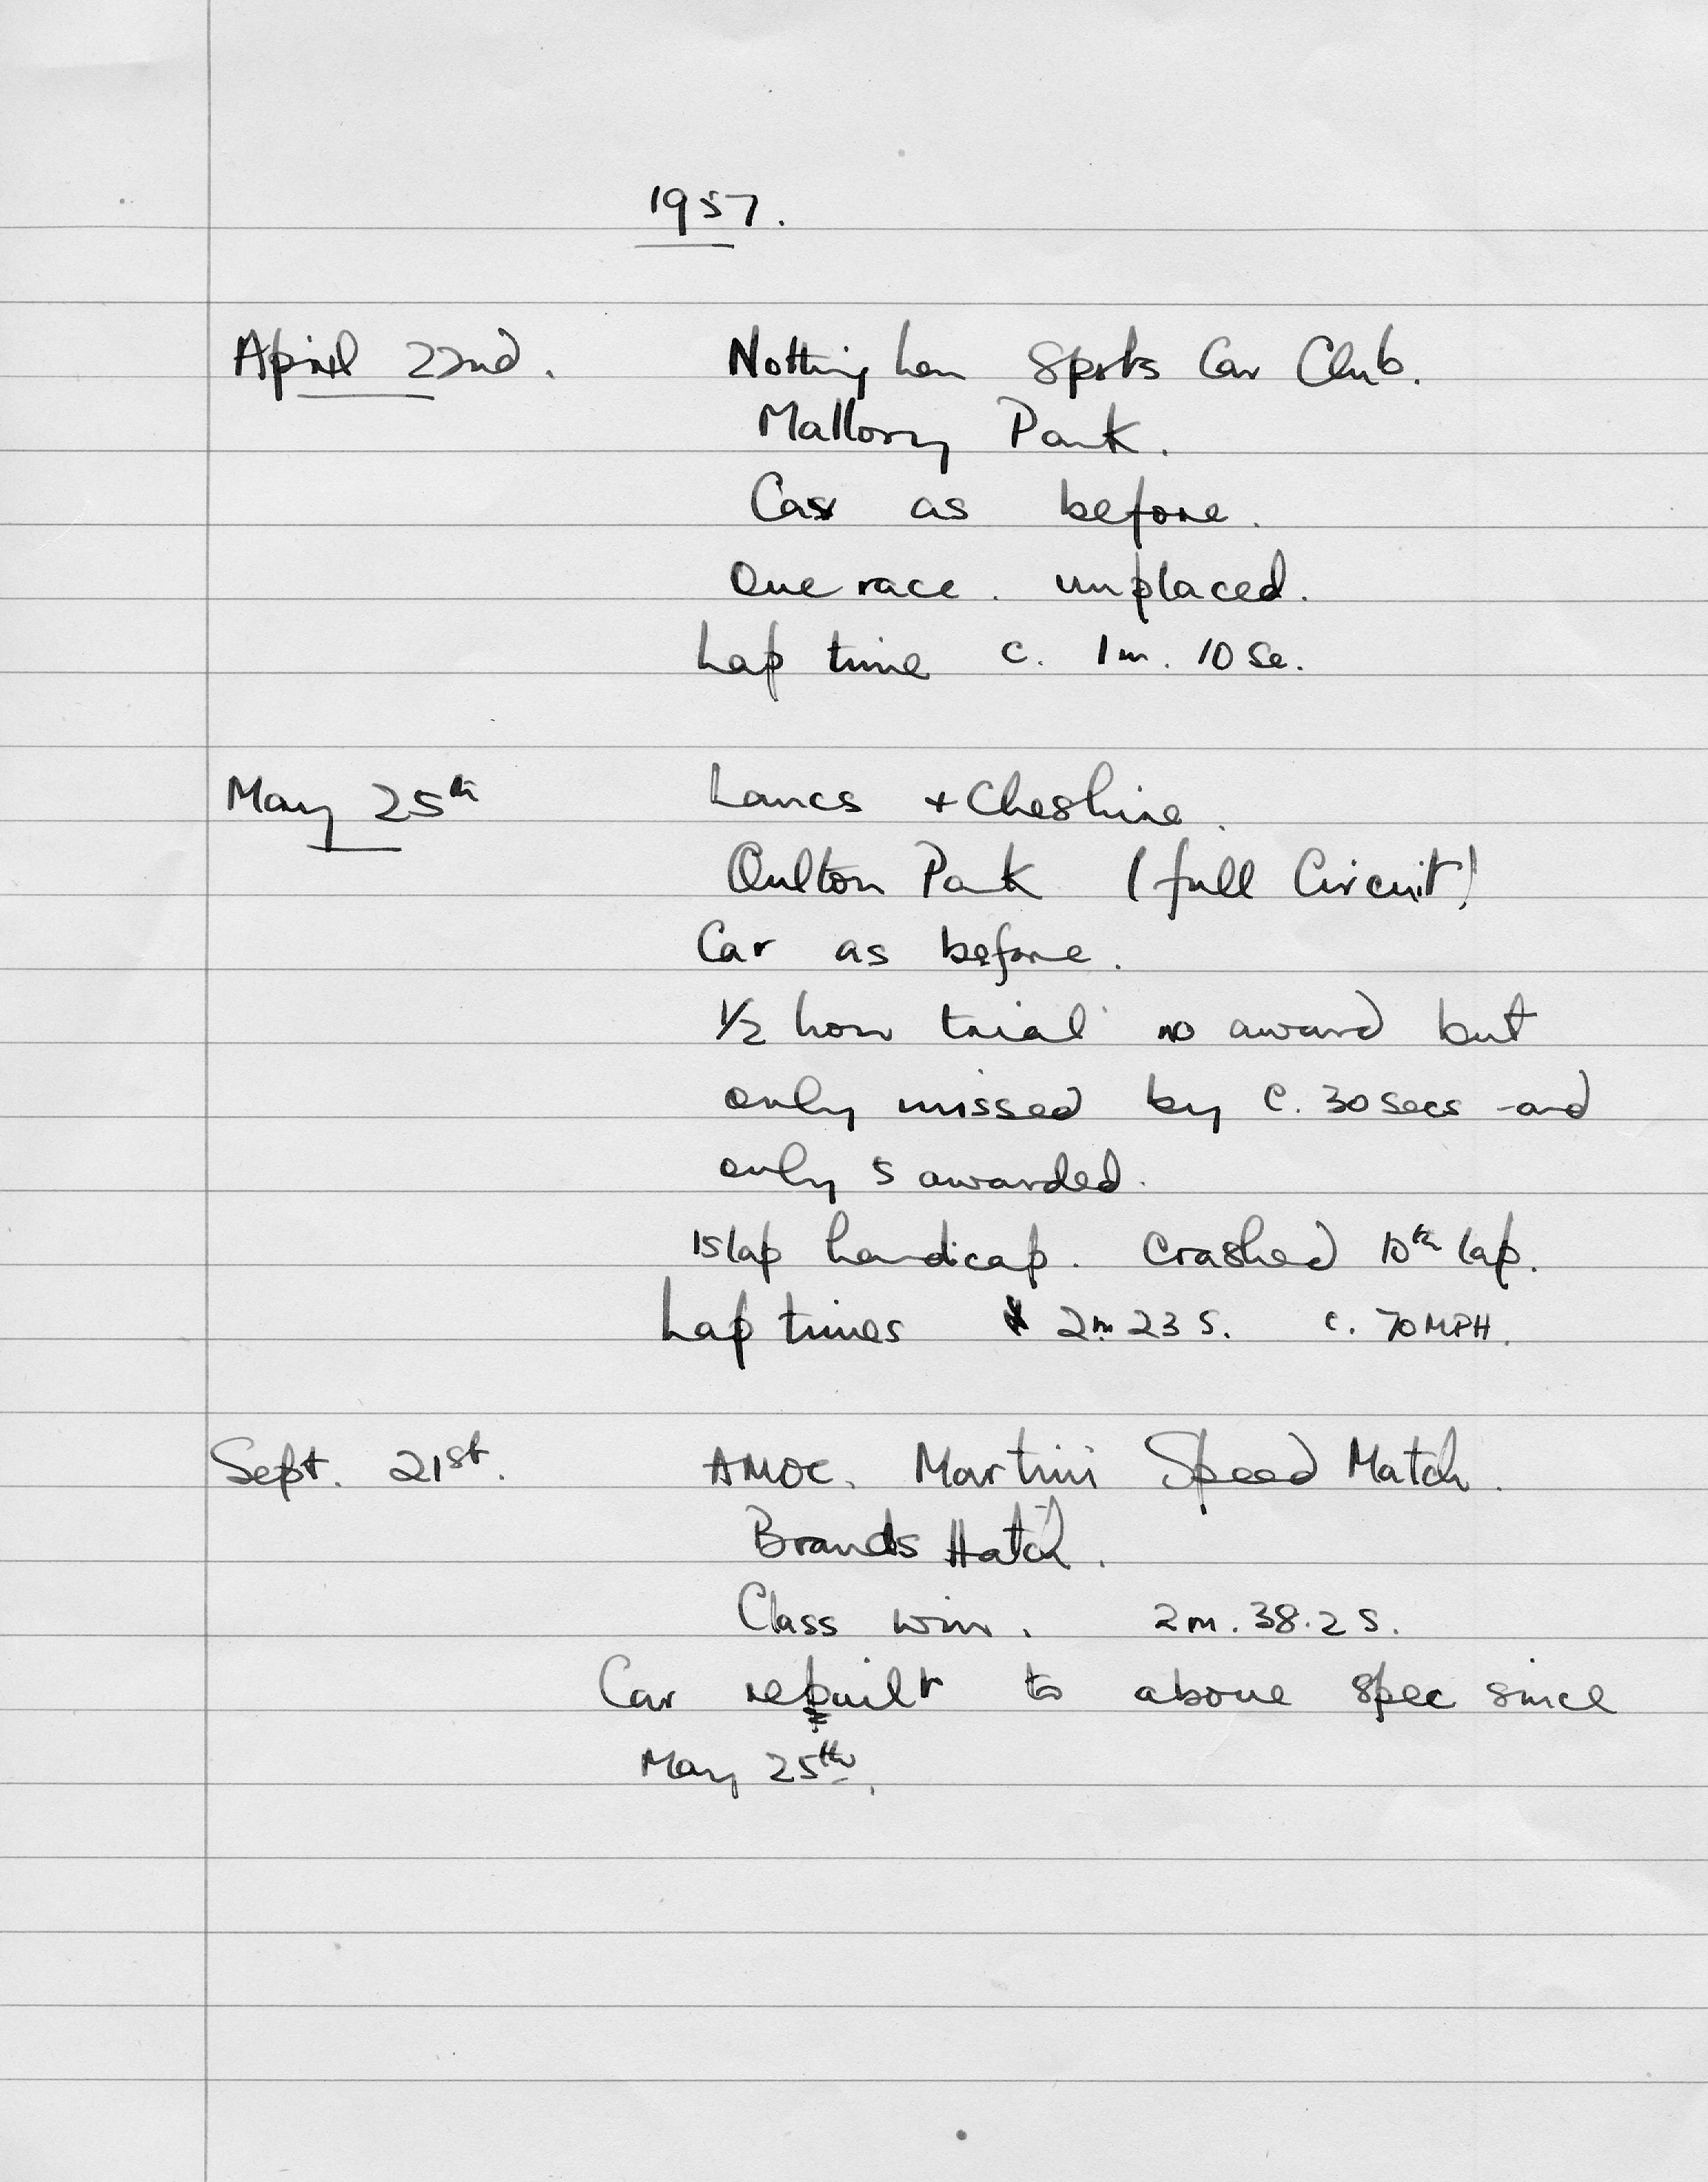 1957.
April 22nd. Nottingham Sports Car Club.
Mallory Park.
Car as before.
One race. unplaced.
Lap time c. 1m. 10 Se.
May 25th Lancs + Cheshire.
Oulton Park (full Circuit)
Car as before.
1/2 hour trial no award but
only missed by c. 30 secs - and
only 5 awarded.
15 lap handicap. Crashed 10th lap.
Lap times 2m 23 S. c. 70 MPH.
Sept. 21st. AMOC. Martini Speed Match.
Brands Hatch.
Class win. 2m. 38.2 S.
Car rebuilt to above spec since
May 25th.